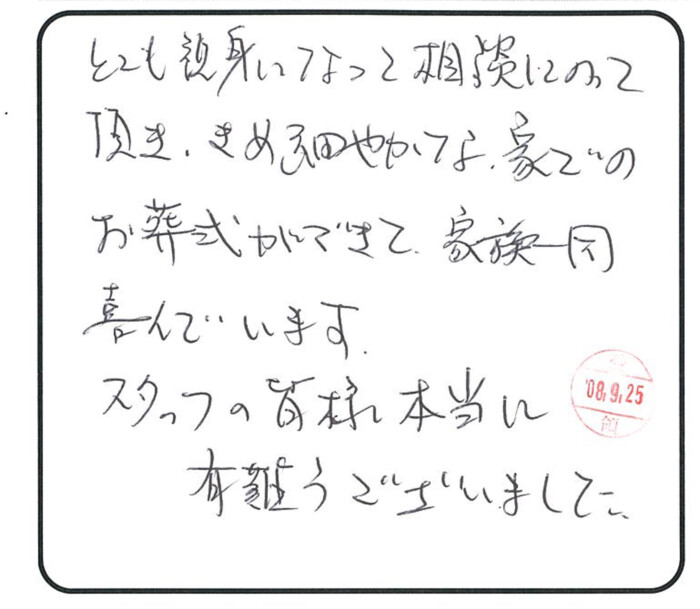 とても親身になって相談にのって
頂き、きめ細やかな、家での
お葬式ができて、家族一同
喜んでいます。
スタッフの皆様、本当に
'08.9.25
有難うございました。